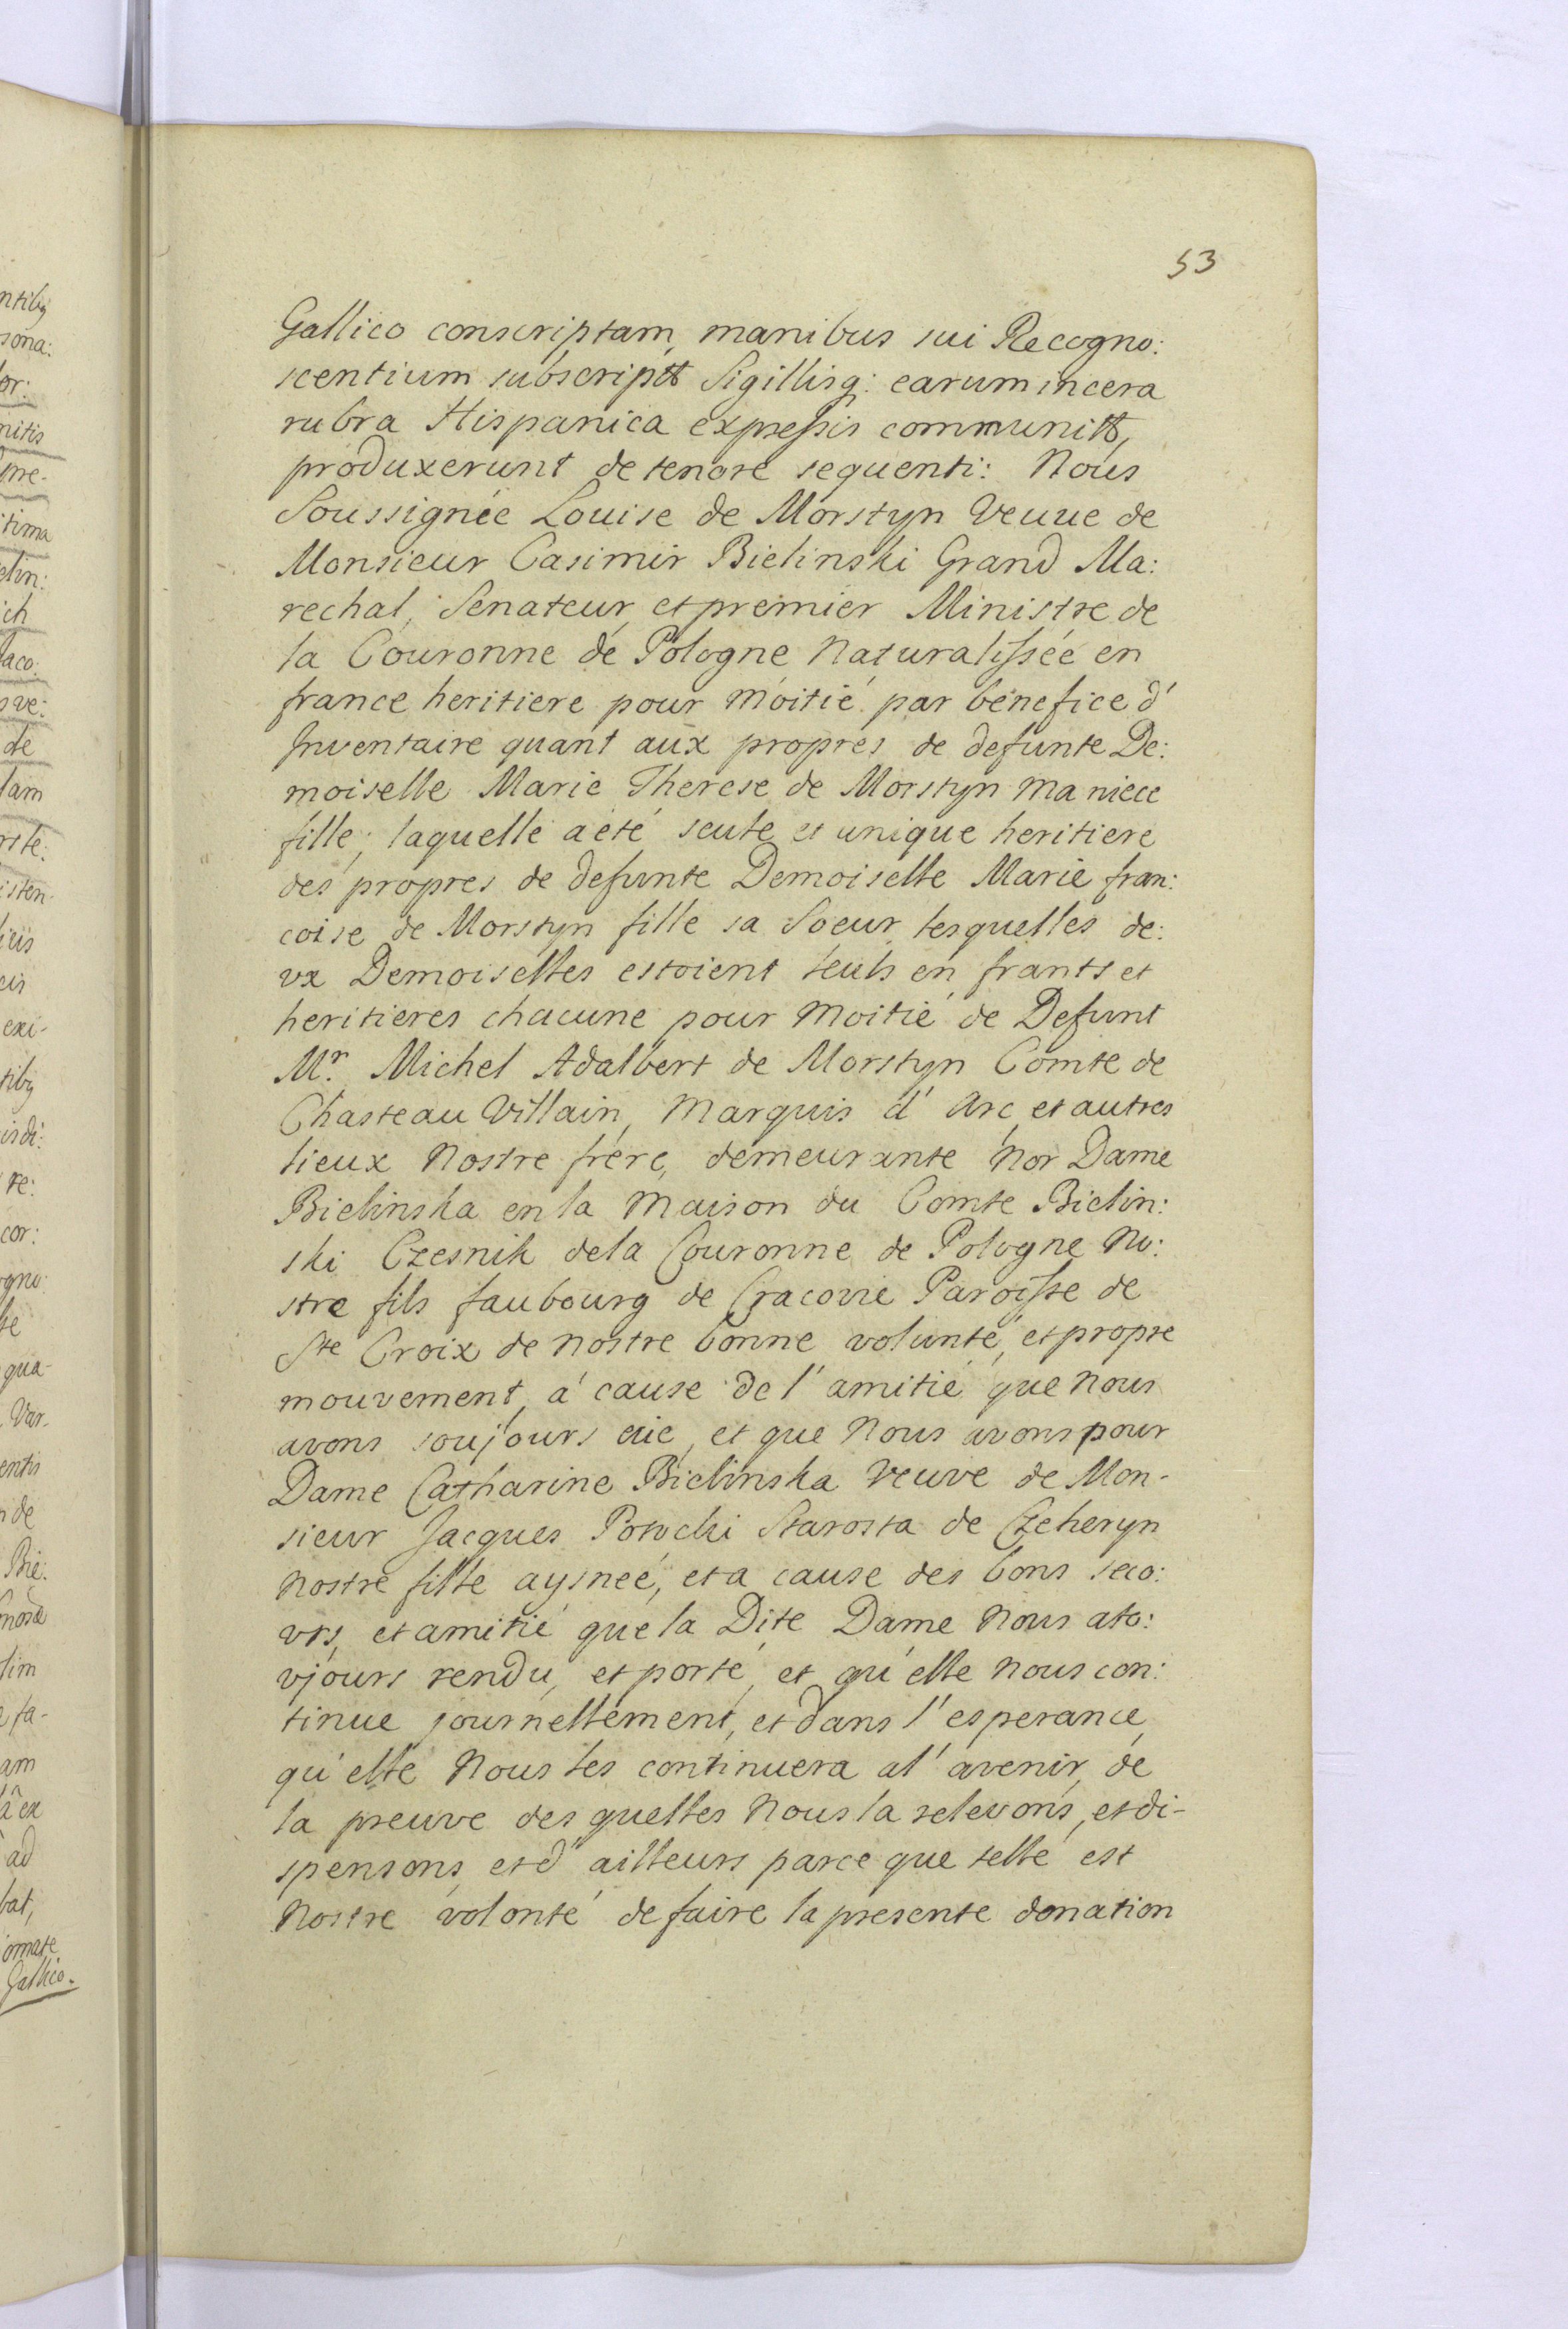 53
Gallico conscriptam, manibus sui Recogno:
scentium subscript Sigillisq: earum in cera
rubra Hispanica expressis communit,
produxerunt de tenore sequenti: Nous
Soussignée Louise de Morstyn Veuue de
Monsieur Casimir Bielinski Grand Ma:
rechal, Senateur, et premier Ministre de
la Couronne de Pologne Naturalissée en
france heritiere pour moitié par benefice d'
Inventaire quant aux propres de defunte De:
moiselle Marie Therese de Morstyn ma niece
fille, laquelle a eté seule et unique heritiere
des propres de defunte Demoiselle Marie fran:
coise de Morstyn fille sa Soeur, lesquelles de:
vx Demoiselles estoient seuls en frants et
heritieres chacune pour moitié de Defunt
Mr. Michel Adalbert de Morstyn Comte de
Chasteau Villain, Marquis d' Arc, et autres
lieux Nostre frére, demeurante Nor Dame
Bielinska en la Maison du Comte Bielin:
ski Czesnik de la Couronne de Pologne No:
stre fils faubourg de Cracovie Paroisse de
Ste Croix de nostre bonne volunté, et propre
mouvement, á cause de l' amitié que Nous
avons soujours eüe, et que Nous avons pour
Dame Catharine Bielinska Veuve de Mon-
sieur Jacques Potocki Starosta de Czeheryn
Nostre fille aysneé, et a cause des bons seco:
vrs, et amitié que la Dite Dame Nous a to:
vjours rendu, et porté, et qu'elle Nous con:
tinue journellement, et dans l' esperance
qu'elle Nous les continuera a l' avenir, de
la preuve des quelles Nous la relevons, et di-
spensons, et d' ailleurs parce que telle est
Nostre volonté de faire la presente donation
ntibq
sona:
lor:
nitis
itima
elin:
ich
laco:
ve:
de
lam
rste:
isten-
cis
exi-
tibq
isdi:
re:
cor:
ogno:
te
qua-
Var-
entis
de
Bie:
lim
fa-
am
ex
ad
bat,
ormate
Gallico.